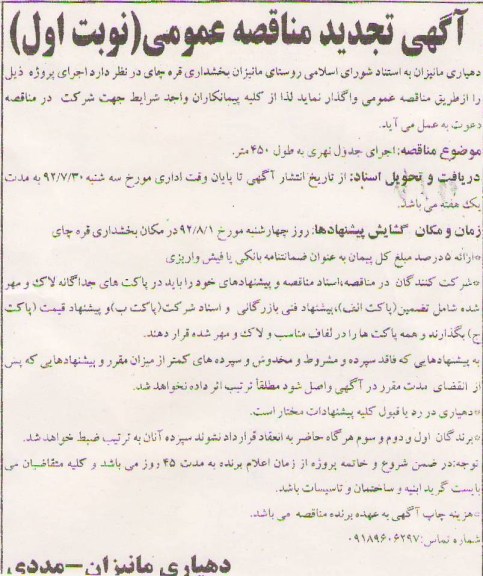 آگهی تجدید مناقصه عمومی(نوبت اول)
دهیاری مانیزان به استناد شورای اسلامی روستای مانیزان بخشداری قره چای در نظر دارد اجرای پروژه ذیل
را ازطریق مناقصه عمومی واگذار نماید لذا از کلیه پیمانکاران واجد شرایط جهت شرکت در مناقصه
دعوت به عمل می آید.
موضوع مناقصه: اجرای جدول نهری به طول ۴۵۰متر.
دریافت و تحویل اسناد: از تاریخ انتشار آگهی تا پایان وقت اداری مورخ سه شنبه ۹۲/۷/۳۰ به مدت
یک هفته می باشد.
زمان و مکان گشایش پیشنهادها: روز چهارشنبه مورخ ۹۲/۸/۱ در مکان بخشداری قره چای
*ارائه ۵ درصد مبلغ کل پیمان به عنوان ضمانتنامه بانکی یا فیش واریزی
*شرکت کنندگان در مناقصه،اسناد مناقصه و پیشنهادهای خود را باید در پاکت های جداگانه لاک و مهر
شده شامل تضمین(پاکت الف)،پیشنهاد فنی بازرگانی و اسناد شرکت(پاکت ب)و پیشنهاد قیمت (پاکت
ج) بگذارند و همه پاکت ها را در لفاف مناسب و لاک و مهر شده قرار دهند.
به پیشنهادهایی که فاقد سپرده و مشروط و مخدوش و سپرده های کمتر از میزان مقرر و پیشنهادهایی که پس
از انقضای مدت مقرر در آگهی واصل شود مطلقاً ترتیب اثر داده نخواهد شد.
*دهیاری در رد یا قبول کلیه پیشنهادات مختار است.
*برندگان اول و دوم و سوم هرگاه حاضر به انعقاد قرارداد نشوند سپرده آنان به ترتیب ضبط خواهد شد.
توجه:در ضمن شروع و خاتمه پروژه از زمان اعلام برنده به مدت ۴۵ روز می باشد و کلیه متقاضیان می
بایست گرید ابنیه و ساختمان و تاسیسات باشد.
*هزینه چاپ آگهی به عهده برنده مناقصه می باشد.
شماره تماس:۰۹۱۸۹۶۰۶۲۹۷
دهیاری مانیزان-مددی